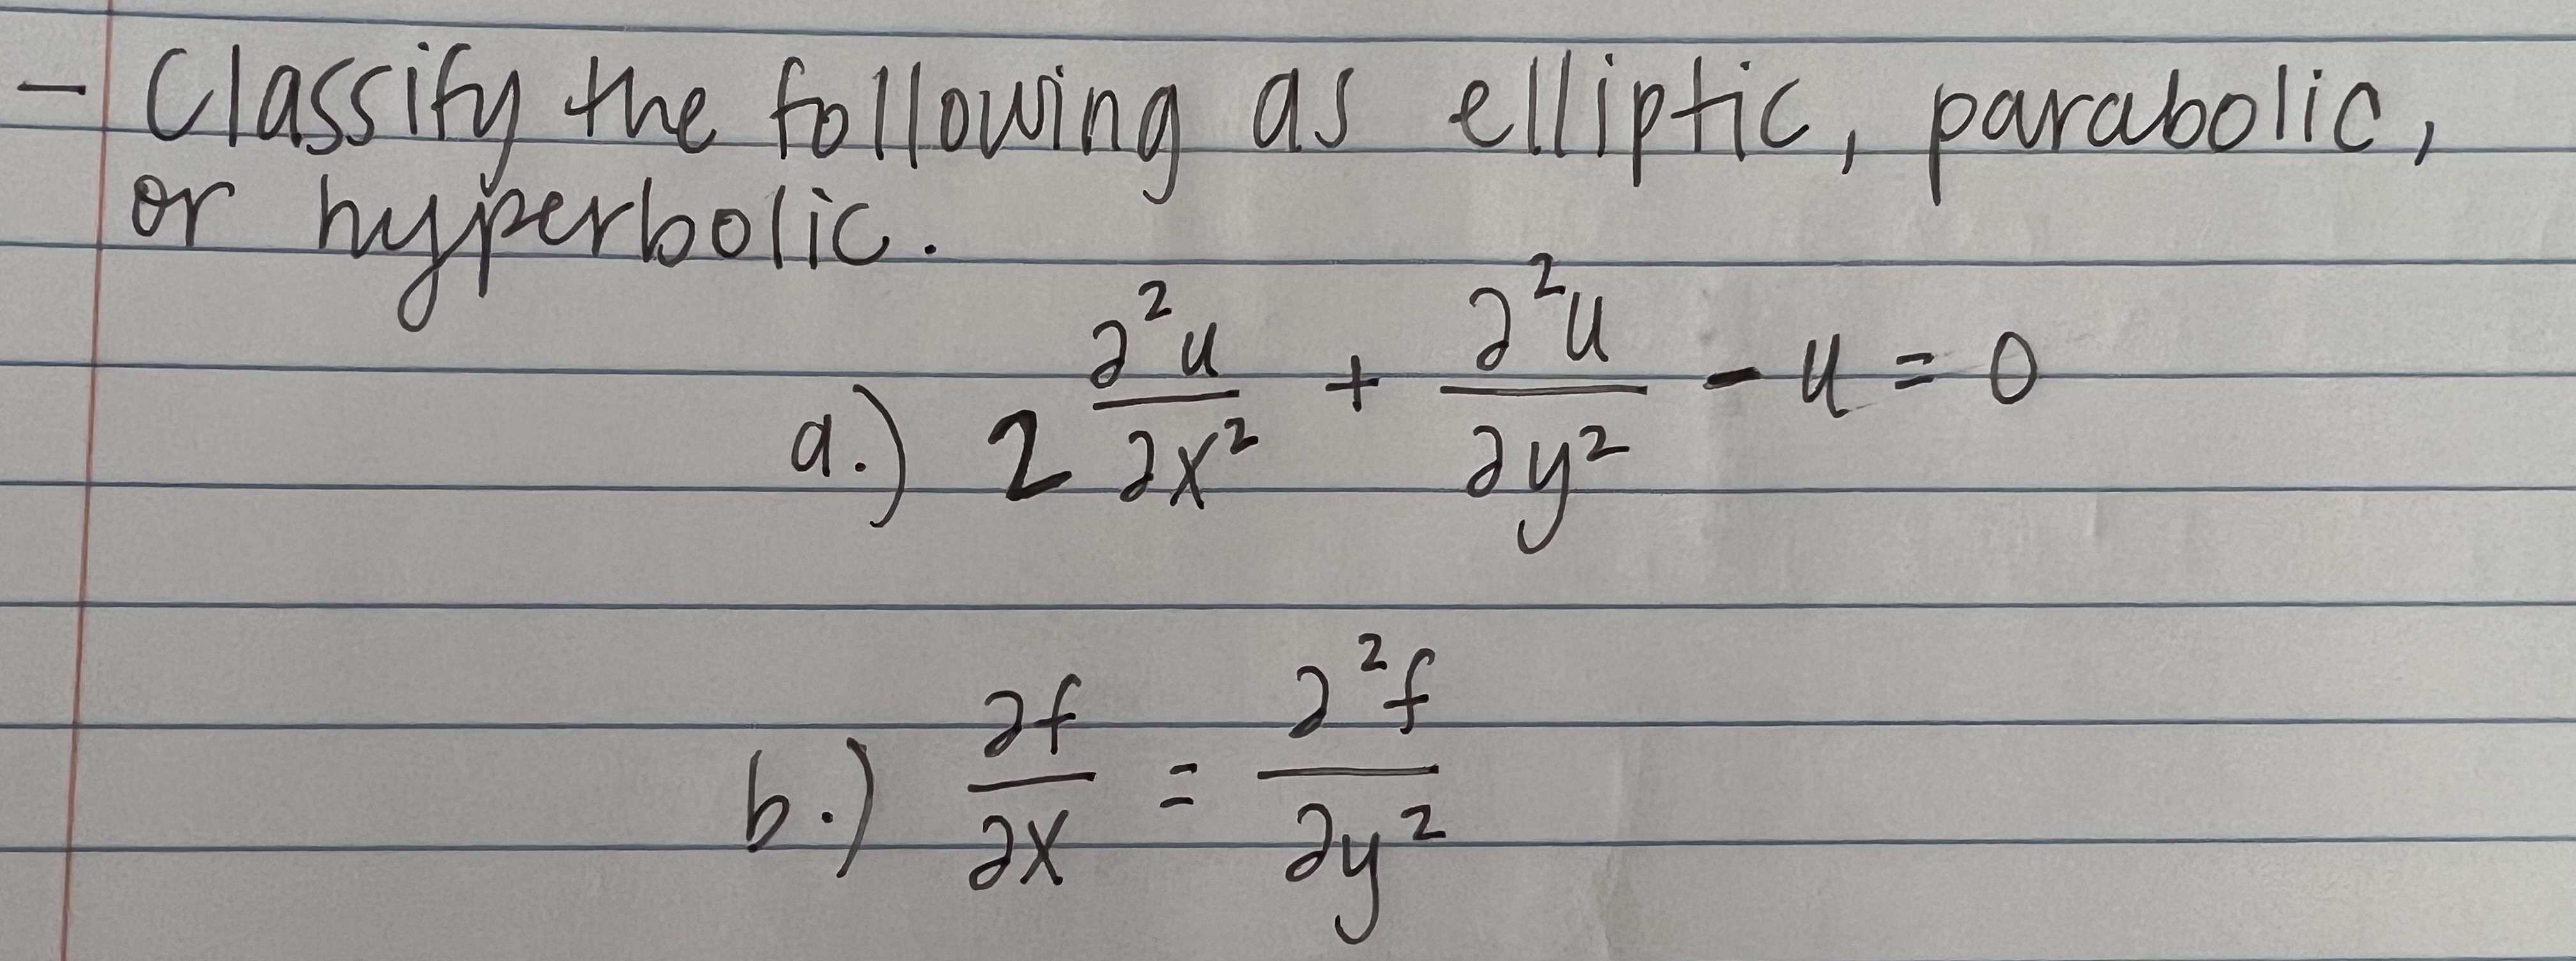 - Classify the following as elliptic, parabolic,
or hyperbolic.
a.) 2 ∂²u/∂x² + ∂²u/∂y² - u = 0
b.) ∂f/∂x = ∂²f/∂y²